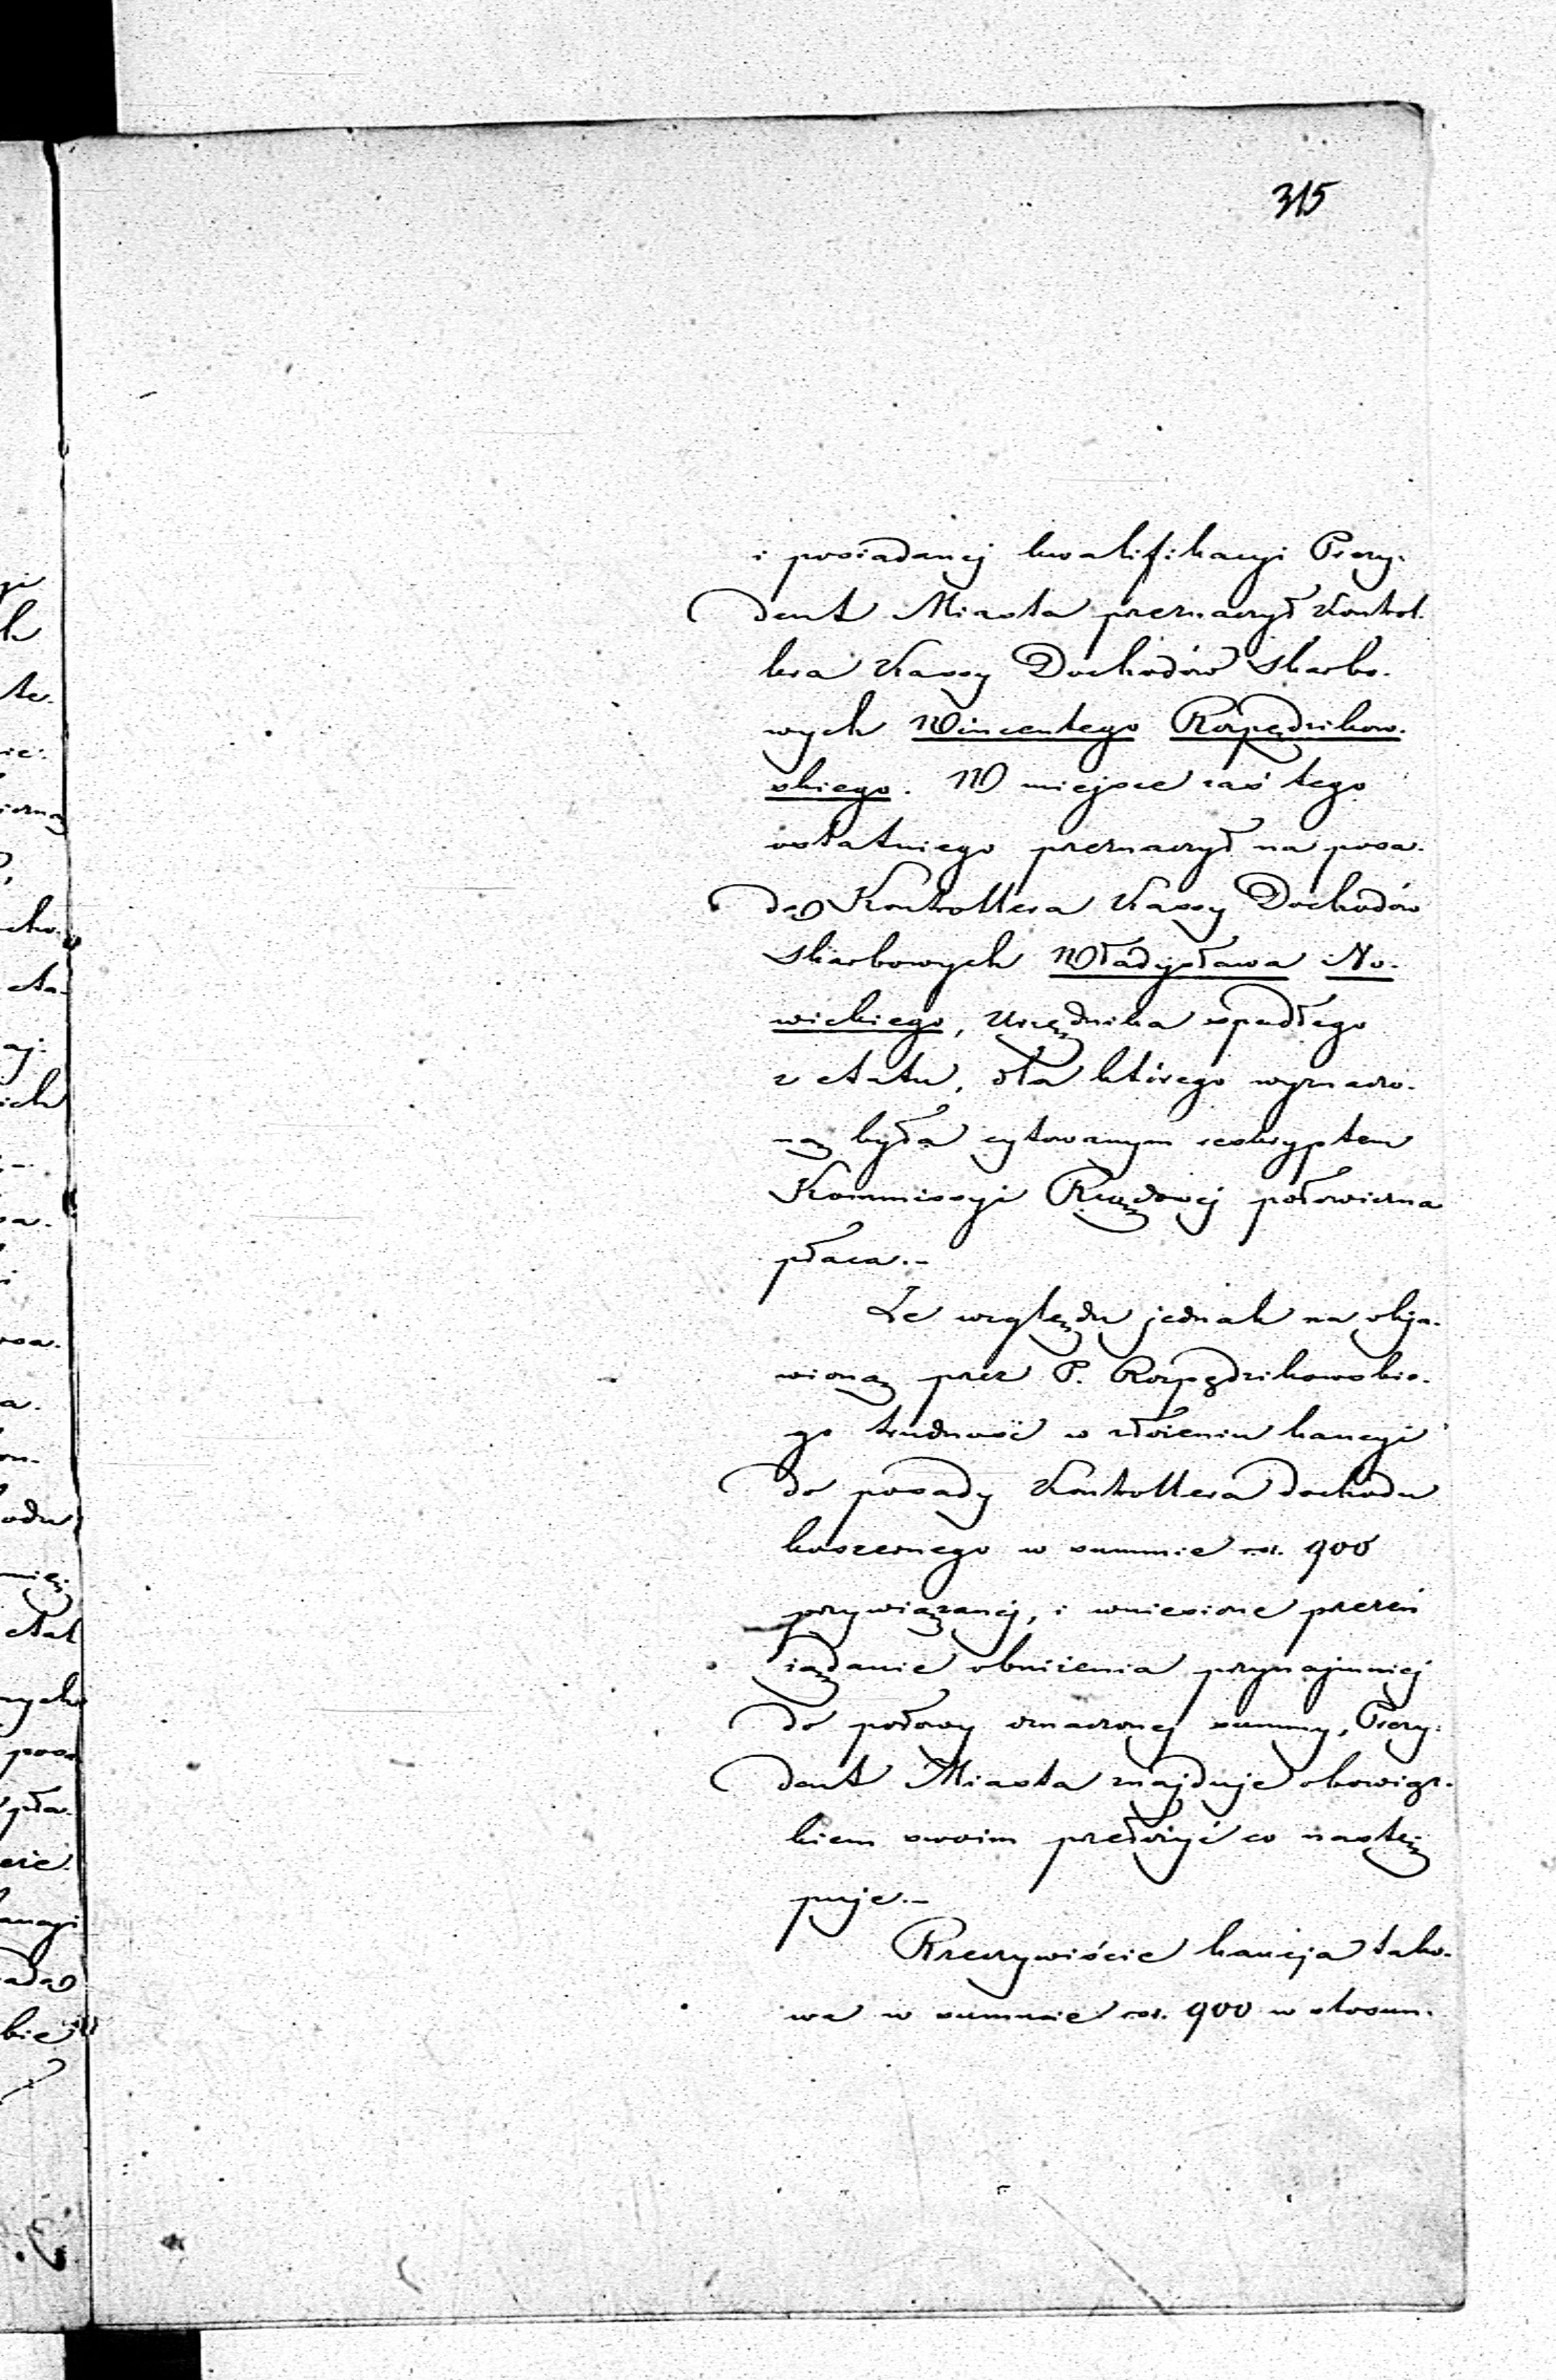 315
i posiadanej kwalifikacyi Prezy-
dent Miasta przeznaczył Kontrol-
lera Kassy Dochodów Skarbo-
wych Wincentego Rozpędzikow-
skiego. W miejsce zaś tego
ostatniego przeznaczył na posa-
dę Kontrollera Kassy Dochodów
Skarbowych Władysława No-
wickiego, Urzędnika spadłego
z etatu, dla którego wyznaczo-
ną była cytowanym reskryptem
Kommissyi Rządowej połowiczna
płaca.-
Ze względu jednak na obja-
wioną przez P. Rozpędzikowskie-
go trudność w złożeniu kaucyi
do posady Kontrollera dochodu
koszernego w summie rsr. 900
przywiązanej, i wniesione przezeń
żądanie obniżenia przynajmniej
do połowy oznaczonej summy, Prezy-
dent Miasta znajduje obowiąz-
kiem swoim przełożyć co nastę-
puje.-
Rzeczywiście kaucja tako-
wa w summie rsr. 900 w stosun-